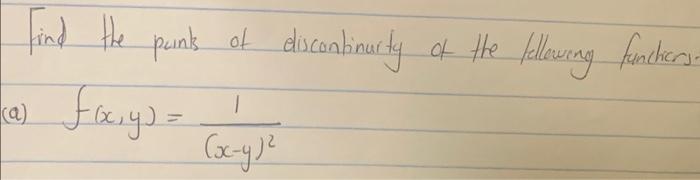 Find the points of discontinuity of the following functions.
(a) f(x,y) = 1/(x-y)²